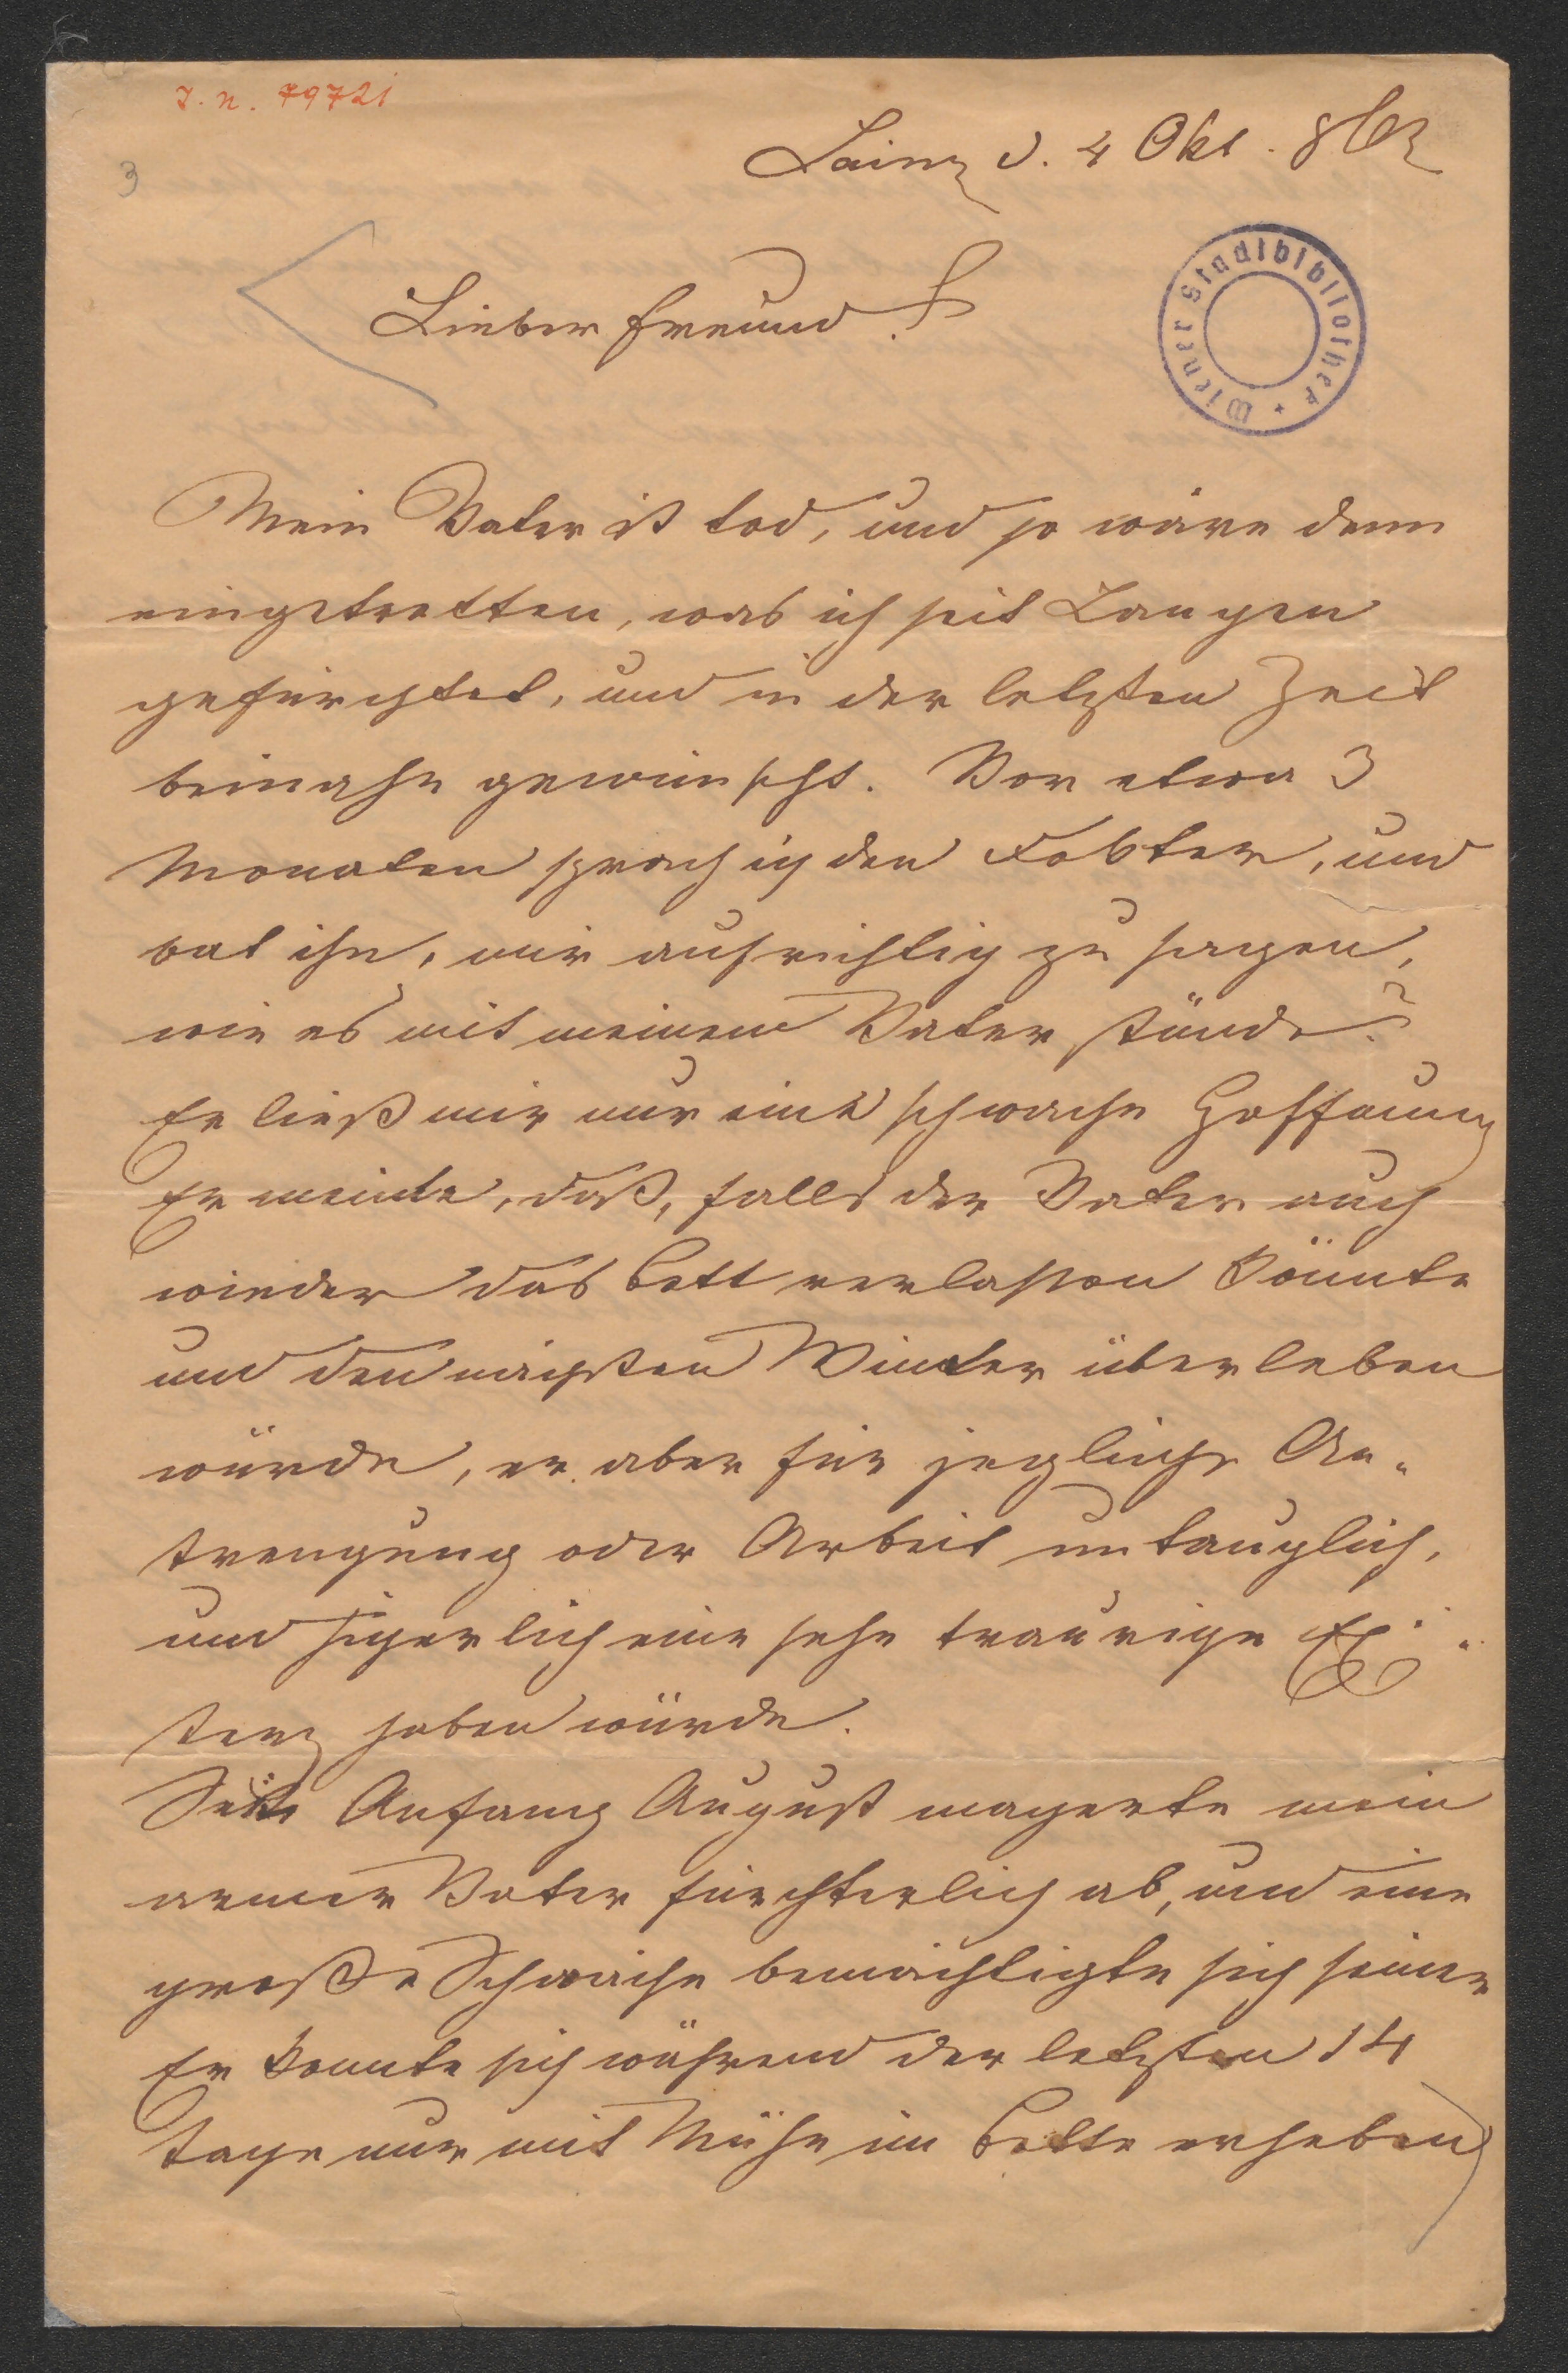 I. N. 79721
3
Lainz d. 4 Okt. 8
Lieber Freund!
Wiener Stadtbibliothek
Mein Vater ist tod, und so wäre denn
eingetretten, was ich seit Langen
gefürchtet, und in der letzten Zeit
beinahe gewünscht. Vor etwa 3
Monaten sprach ich den , und
bat ihn, mir aufrichtig zu sagen,
wie es mit meinem Vater stünde?
Er ließ mir nur eine schwache Hoffnung
Er meinte, daß, falls der Vater auch
wieder das Bett verlassen könnte
und den nächsten Winter überleben
würde, er aber für jegliche An-
strengung oder Arbeit untauglich,
und sicherlich eine sehr traurige Exi-
stenz haben würde.
Seit Anfang August magerte mein
armer Vater fürchterlich ab, und eine
große Schwäche bemächtigte sich seiner
Er konnte sich während der letzten 14
Tage nur mit Mühe im Bette erheben